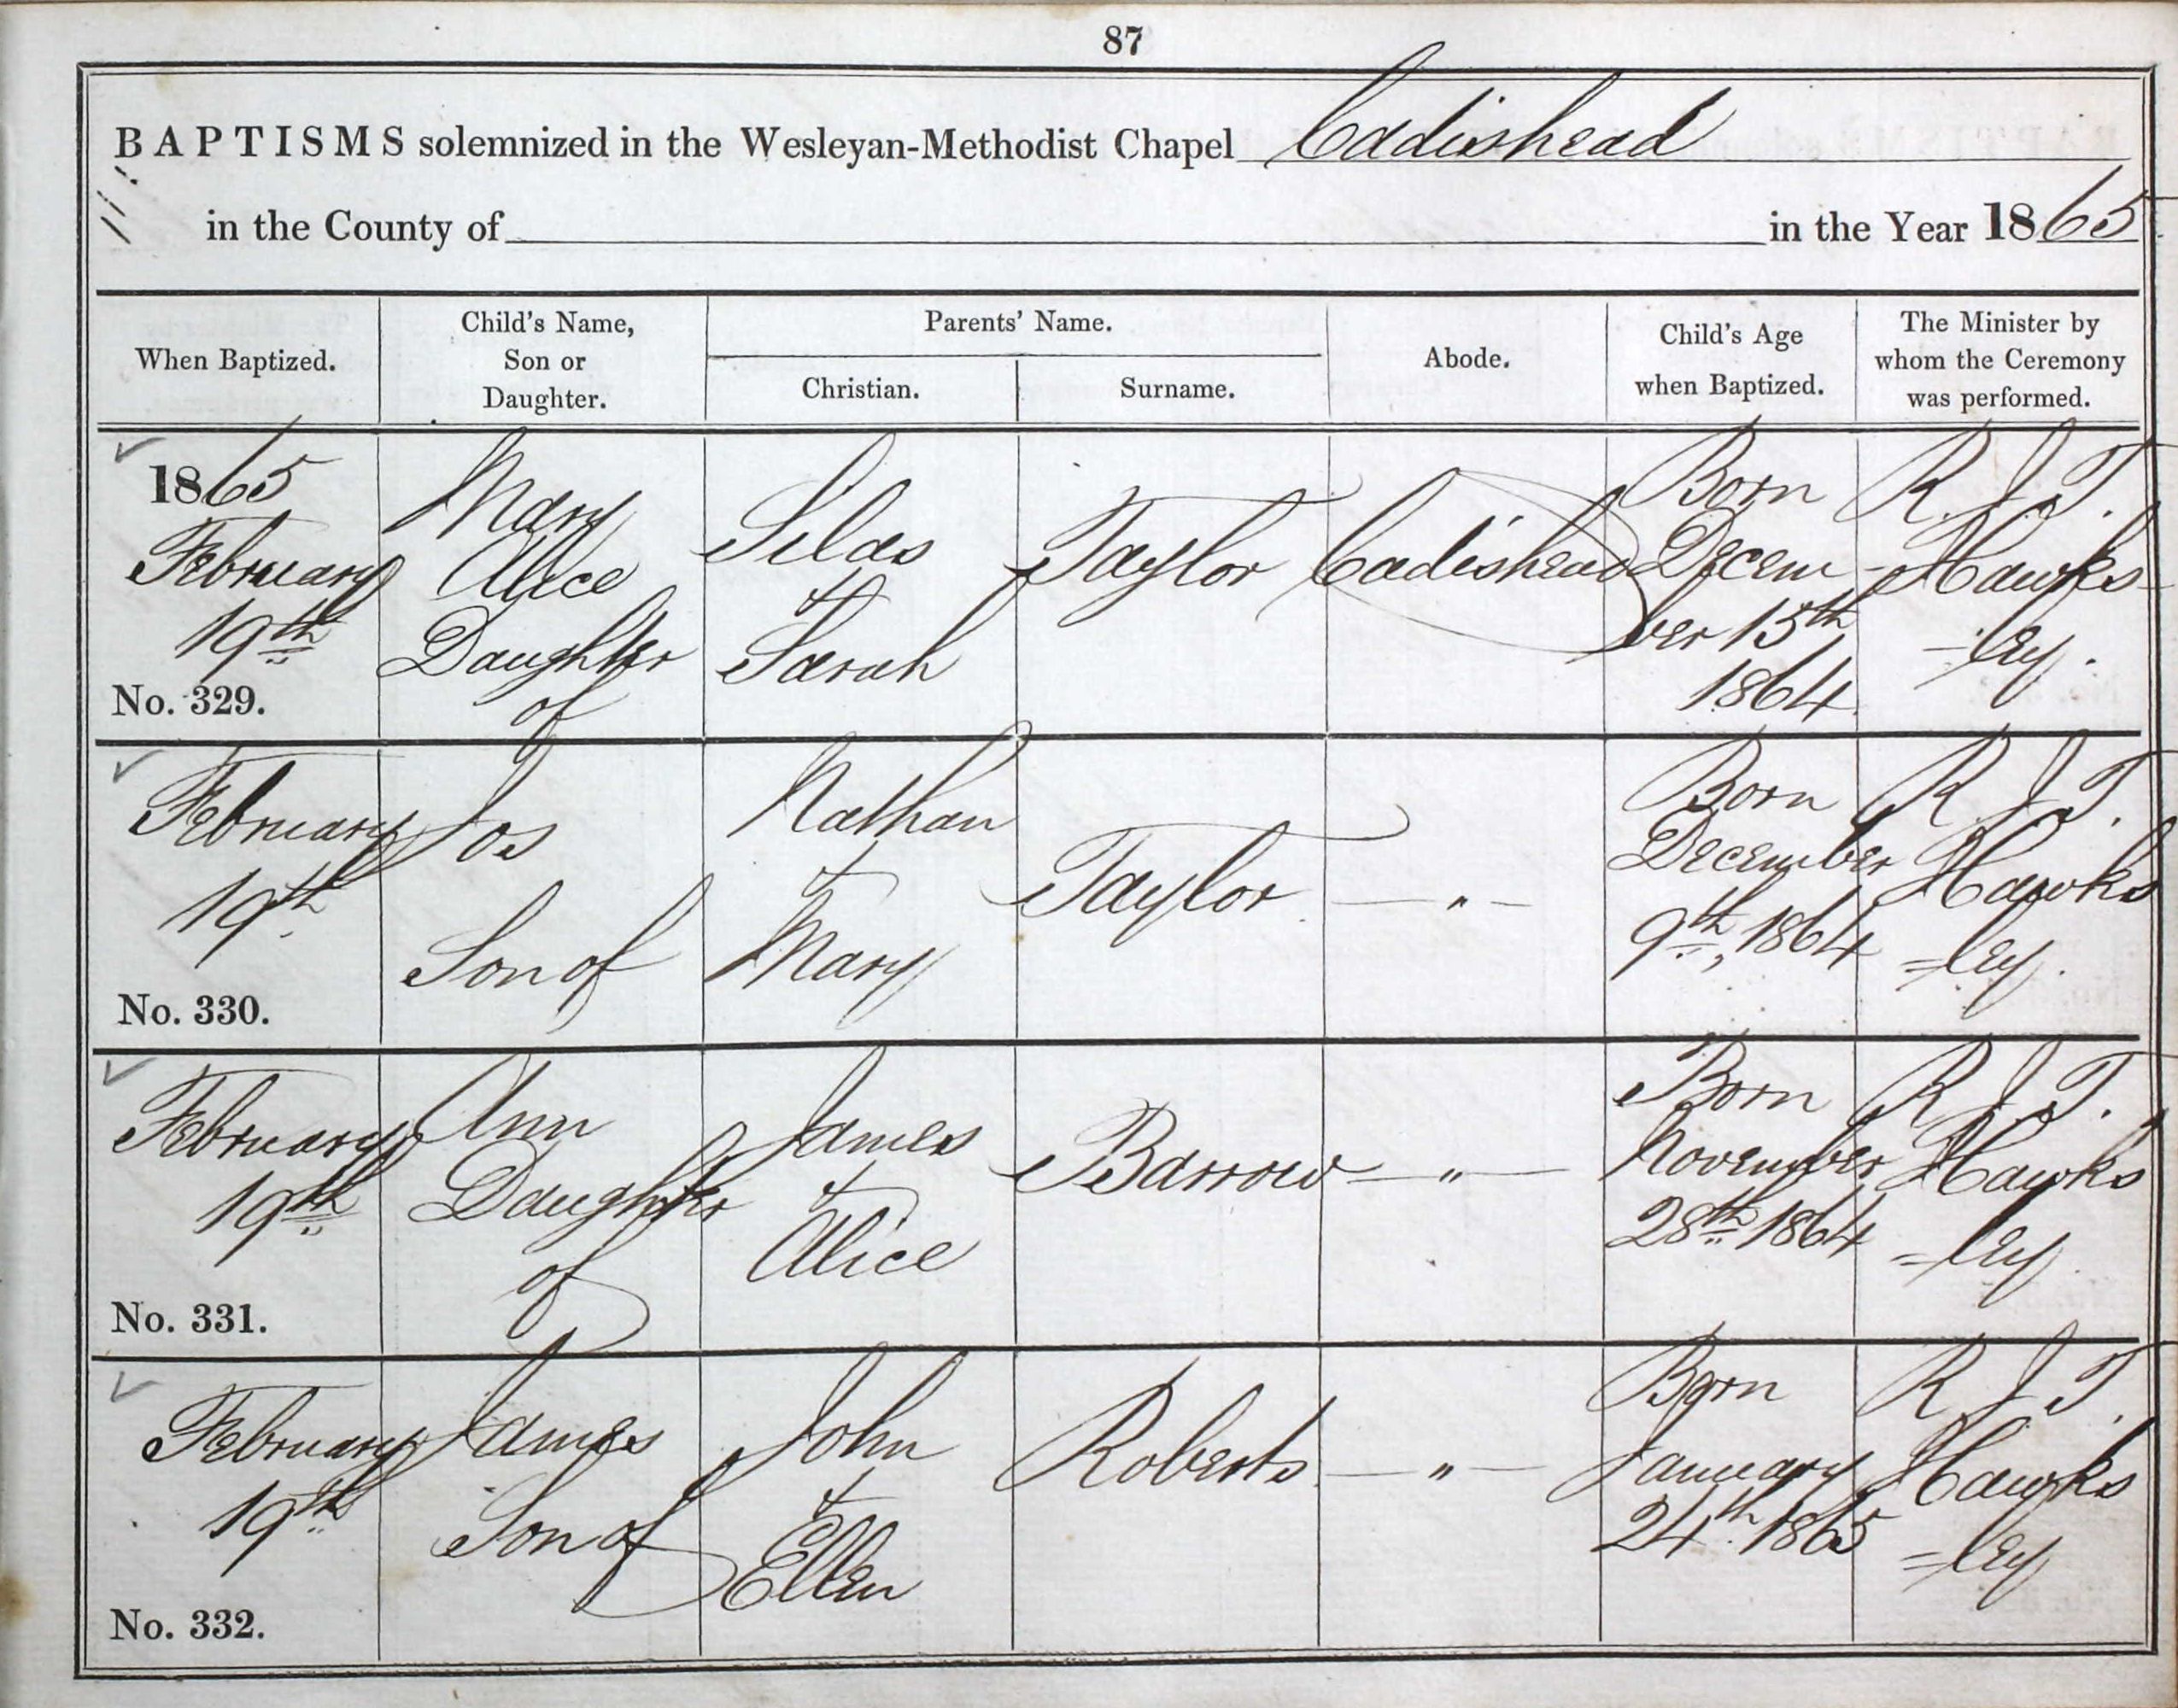 87
BAPTISMS solemnized in the Wesleyan-Methodist Chapel Cadishead
in the County of in the Year 1865
When Baptized.
Child's Name,
Son or
Daughter.
Parents' Name.
Christian.
Surname.
Abode.
Child's Age
when Baptized.
The Minister by
whom the Ceremony
was performed.
1865
February
19th
No. 329.
Mary
Alice
Daughter
of
Silas
&
Sarah
Taylor
Cadishead
Born
Decem-
ber 15th
1864.
R. J. T.
Hawks-
-ley.
February
19th
No. 330.
Jos
Son of
Nathan
&
Mary
Taylor
— " —
Born
December
9th, 1864
R. J. T.
Hawks
=ley.
February
19th
No. 331.
Ann
Daughter
of
James
&
Alice
Barrow
— " —
Born
November
28th 1864
R. J. T.
Hawks
=ley
February
19th
No. 332.
James
Son of
John
&
Ellen
Roberts
— " —
Born
January
24th 1865
R. J. T.
Hawks
=ley